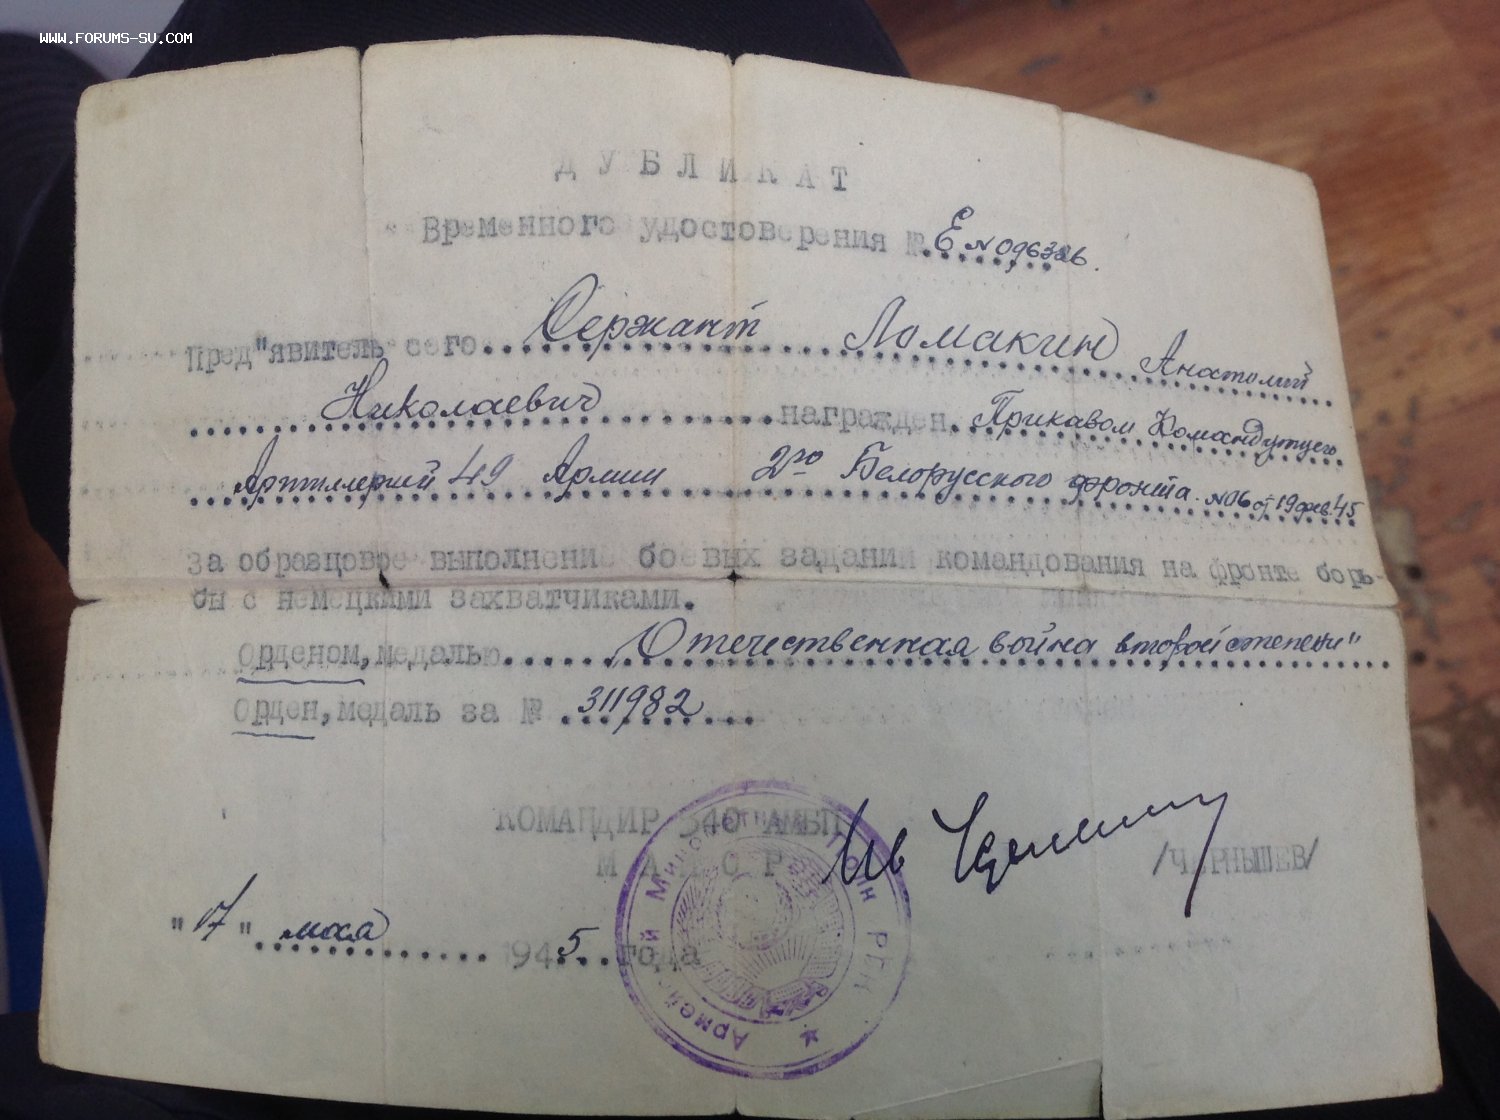 WWW.FORUMS-SU.COM
ДУБЛИКАТ
Временного удостоверения № Е № 096326.
Пред"явитель сего Сержант Ломакин Анатолий
Николаевич награжден Приказом Командующего
Артиллерий 49 Армии 2го Белорусского фронта №06 от 19 фев. 45
за образцовое выполнение боевых заданий командования на фронте борь-
бы с немецкими захватчиками.
Орденом, медалью Отечественная война второй степени"
Орден, медаль за № 311982
КОМАНДИР 540 АМБП
МАЙОР /ЧЕРНЫШЕВ/
"17" мая 1945 года
Армейский Минометный Полк РГК